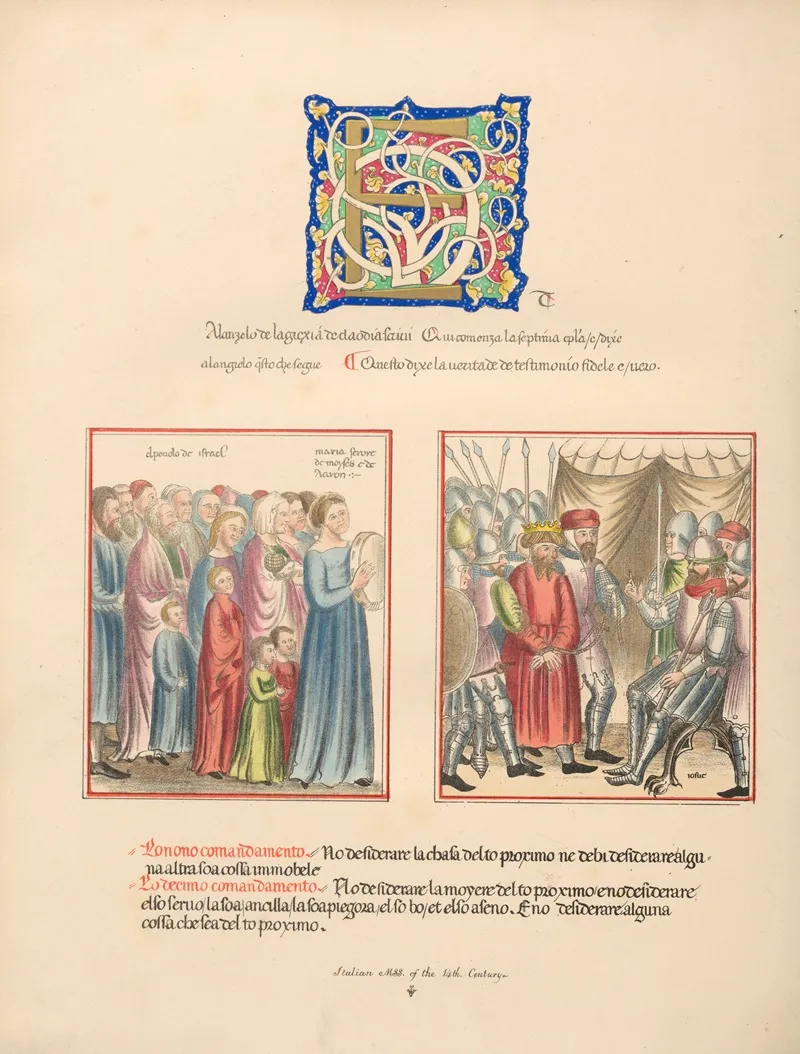 E
Alanzelo de la giexia de Laodia scrivi Qui comenza la septima epla/e/dixe
al angielo qsto che segue ¶ Questo dixe la veritade de testimonio fidele e/vero.
el povolo de israel
maria serore
de moyses e de
Aaron
iosue
Lo nono comandamento. No desiderare la chasa del to proximo ne debi desiderare algu-
na altra soa cossa immobele
Lo decimo comandamento. No desiderare la moyere del to proximo/e no desiderare
el so servo/la soa ancilla/la soa piegora/el so bo/et el so aseno. E no desiderare alguna
cossa che sea del to proximo.
Italian MSS. of the 14th. Century.